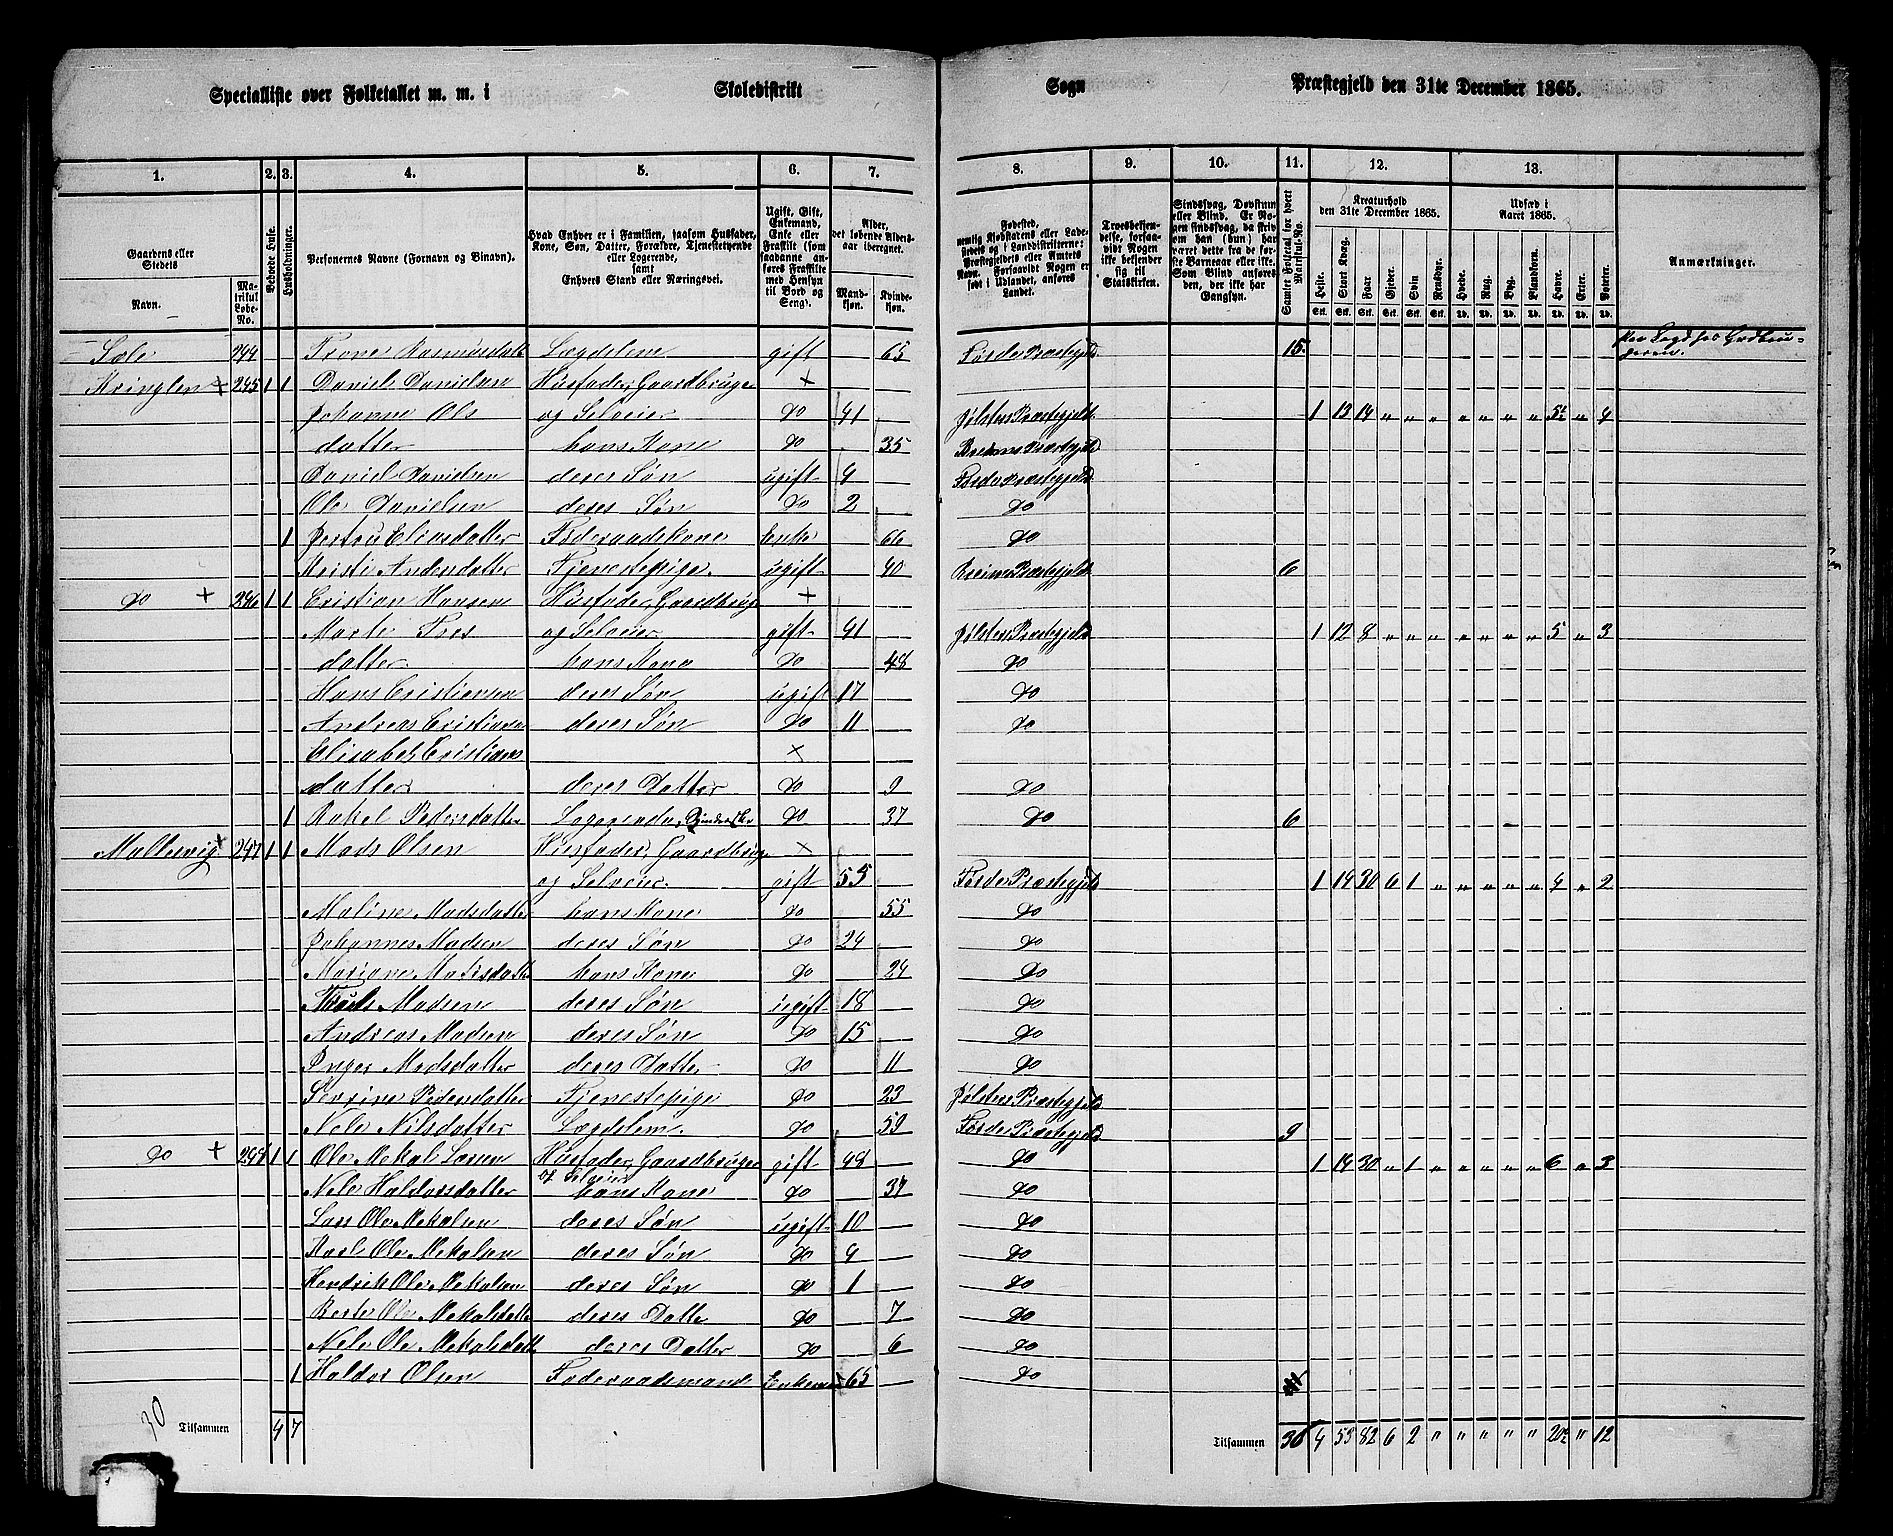 Specialliste over Folketallet m. m. i Skoledistrikt Sogn Præstegjeld den 31te December 1865.
1. 2. 3. 4. 5. 6. 7. 8. 9. 10. 11. 12. 13.
Gaardens eller Stedets
Navn. Matrikul Løbe-No.
Beboede Huse.
Husholdninger.
Personernes Navne (Fornavn og Binavn).
Hvad Enhver er i Familien, saasom Husfader, Kone, Søn, Datter, Forældre, Tjenestetyende eller Logerende, samt Enhvers Stand eller Næringsvei.
Ugift, Gift, Enkemand, Enke eller Fraskilt (som saadanne anføres Fraskilte med Hensyn til Bord og Seng).
Alder, det løbende Aldersaar iberegnet.
Mandkjøn. Kvindekjøn.
Fødested, nemlig Kjøbstadens eller Ladestedets og i Landdistrikterne: Præstegjeldets eller Amtets Navn. Forsaavidt Nogen er født i Udlandet, anføres Landet.
Troesbekjendelse, forsaavidt Nogen ikke bekjender sig til Statskirken.
Sindssvag, Døvstum eller Blind. Er Nogen sindssvag, da skrives om han (hun) har været dette fra de første Barneaar eller ikke. Som Blind anføres den, der ikke har Gangsyn.
Samlet Folketal for hvert Matrikul-No.
Kreaturhold den 31te December 1865.
Heste. Stort Kvæg. Faar. Gjeder. Svin. Rensdyr.
Udsæd i Aaret 1865.
Hvede. Rug. Byg. Blandkorn. Havre. Erter. Poteter.
Anmærkninger.
Sole 244 Rasmusdatt Lægdslem gift 65 Førde Præstegjeld 15.
Kringlen + 245 1 1 Daniel Danielsen Husfader, Gaardbruger +
Johanne Ols og Selveier do 41 Jølsters Præstegjeld 1 13 14 „ „ „ „ „ „ „ „ 4
datter hans Kone do 35 Præstegjeld
Daniel Danielsen deres Søn ugift 4 Førde Præstegjeld
Ole Danielsen deres Søn do 2 do
1 Eliasdatter Føderaadskone Enke 66 do
Kristi Andersdatter Tjenestepige ugift 40 Præstegjeld 6
do + 246 1 1 Cristian Hansen Husfader, Gaardbruger +
Marte og Selveier gift 41 Jølsters Præstegjeld 1 12 8 „ „ „ „ „ „ „ 5 „ 3
datter hans Kone do 48 do
Hans Cristiansen deres Søn ugift 17 do
Andreas Cristiansen deres Søn do 11 do
Elisabet Cristians +
datter deres Datter do 9 do
1 Rakel Pedersdatter Logerende do 37 do 6
+ 247 1 1 Mads Olsen Husfader, Gaardbruger +
og Selveier gift 55 Førde Præstegjeld 1 14 30 6 1 „ „ „ „ „ 4 „ 2
Maline Madsdatter hans Kone do 55 do
Johannes Madsen deres Søn do 24 do
Mariane Matisdatter hans Kone do 24 do
Madsen deres Søn ugift 18 do
Andreas Madsen deres Søn do 15 do
Inger Madsdatter deres Datter do 11 do
Pedersdatter Tjenestepige do 23 Jølsters Præstegjeld
Nele Nilsdatter Lægdslem do 59 Førde Præstegjeld 9
do + 248 1 1 Ole Mekal Larsen Husfader, Gaardbruger gift 48 do 1 14 30 „ 1 „ „ „ „ „ 6 „ 3
og Selveier
Nele Haldorsdatter hans Kone do 37 do
Lars Ole Mekalsen deres Søn ugift 10 do
Karl Ole Mekalsen deres Søn do 4 do
Hendrik Ole Mekalsen deres Søn do 1 do
Berte Ole Mekalsdatte deres Datte do 7 do
Nele Ole Mekalsdatt deres Datter do 6 do
1 Haldor Olsen Føderaadsmand Enkemand 65 do
30 Tilsammen 4 7 Tilsammen 36 4 53 82 6 2 „ „ „ „ „ „ 12